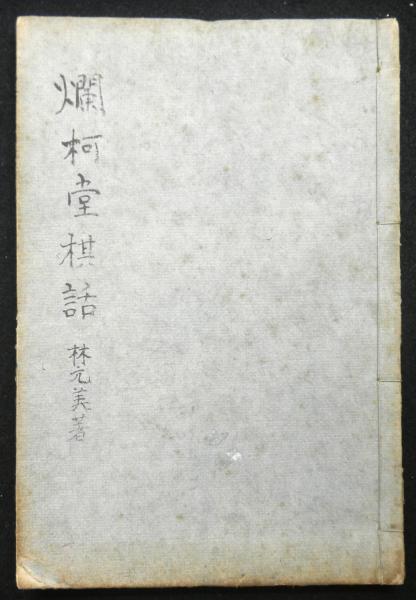 爛柯堂棋話
林元美著